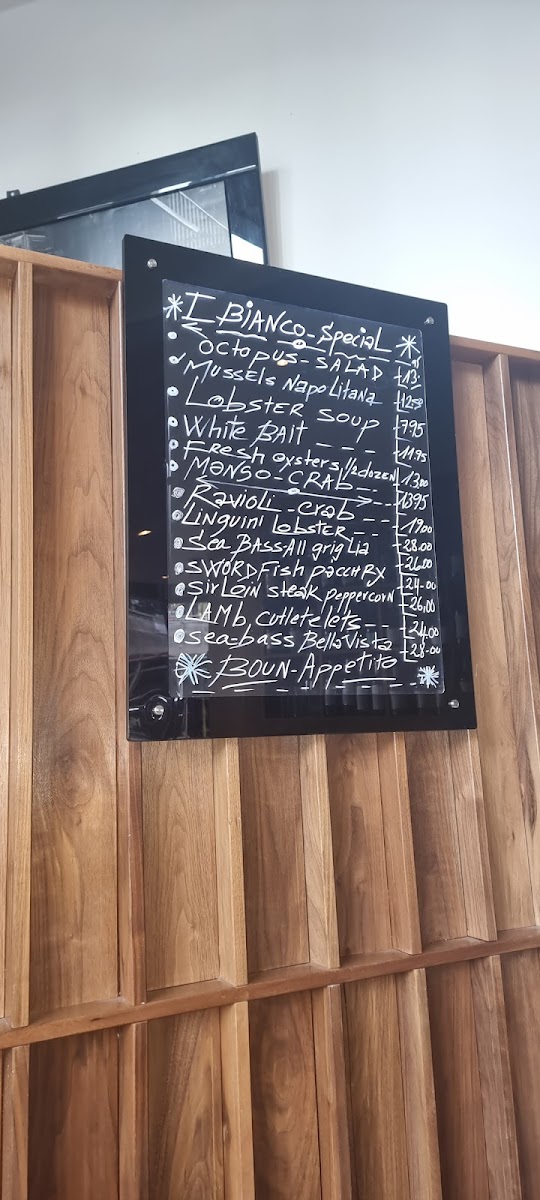 I BiANCO-SpeciaL
OCTOPUS-SALAD -13-
MUSSELS NapoLitana -12.50
LobSTER SOUP -7.95
White BAIT - - - -11.95
Fresh oysters 1/2 dozen -13.00
MANSO-CRAb - - -13.95
Ravioli-crab - - -19.00
Linguini LobSTER - - -28.00
Sea BASS All grigLia -26.00
SWORDFish pacchRy -24.00
SirLoiN steak peppercorN -26.00
LAMb, cutletelets - - -24.00
sea-bass BellaVista -28.00
BOUN-AppeTito